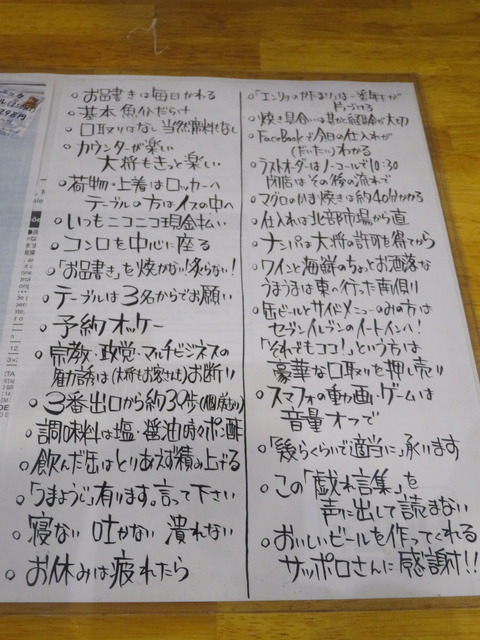 。お品書きは毎日かわる
。基本魚介だらけ
。口取りはなし 当然酢料もなし
。カウンターが楽しい
大将もきっと楽しい
。荷物・上着はロッカーへ
テーブルの方はイスの中へ
。いつもニコニコ現金払い
。コンロを中心に座る
。「お品書き」を焼かない!条らない!
。テーブルは3名からでお願い
。予約オッケー
。宗教・政党・マルチビジネスの
勧誘は(大将もお客さんも)お断り
。3番出口から約34歩(個差あり)
。調味料は塩・醤油時々ポン酢
。飲んだ缶はとりあえず積み上げる
。「うまようじ」有ります。言って下さい
。寝ない 吐かない 潰れない
。お休みは疲れたら
。「エンリョのかたまり」は一番年下が
やっつける
。焼き具合いは勘と経験が大切
。FaceBookで今日の仕入れが
(だいたい)わかる
。ラストオーダーはノーコールで10:30
閉店はその後の流れで
。マグロのかま焼きは約40分かかる
。仕入れは北部市場から直
。ナンパは大将の許可を得てから
。ワインと海鮮のちょっとお洒落な
うまうまは東へ行った南側り
。缶ビールとサイドメニューのみの方は
セブンイレブンのイートインへ!
「それでもココ!」という方は
豪華な口取りを押し売り
。スマフォの動画・ゲームは
音量オフで
。「幾らくらいで適当に」承ります
。この「戯れ言集」を
声に出して読まない
。おいしいビールを作ってくれる
サッポロさんに感謝!!
298円